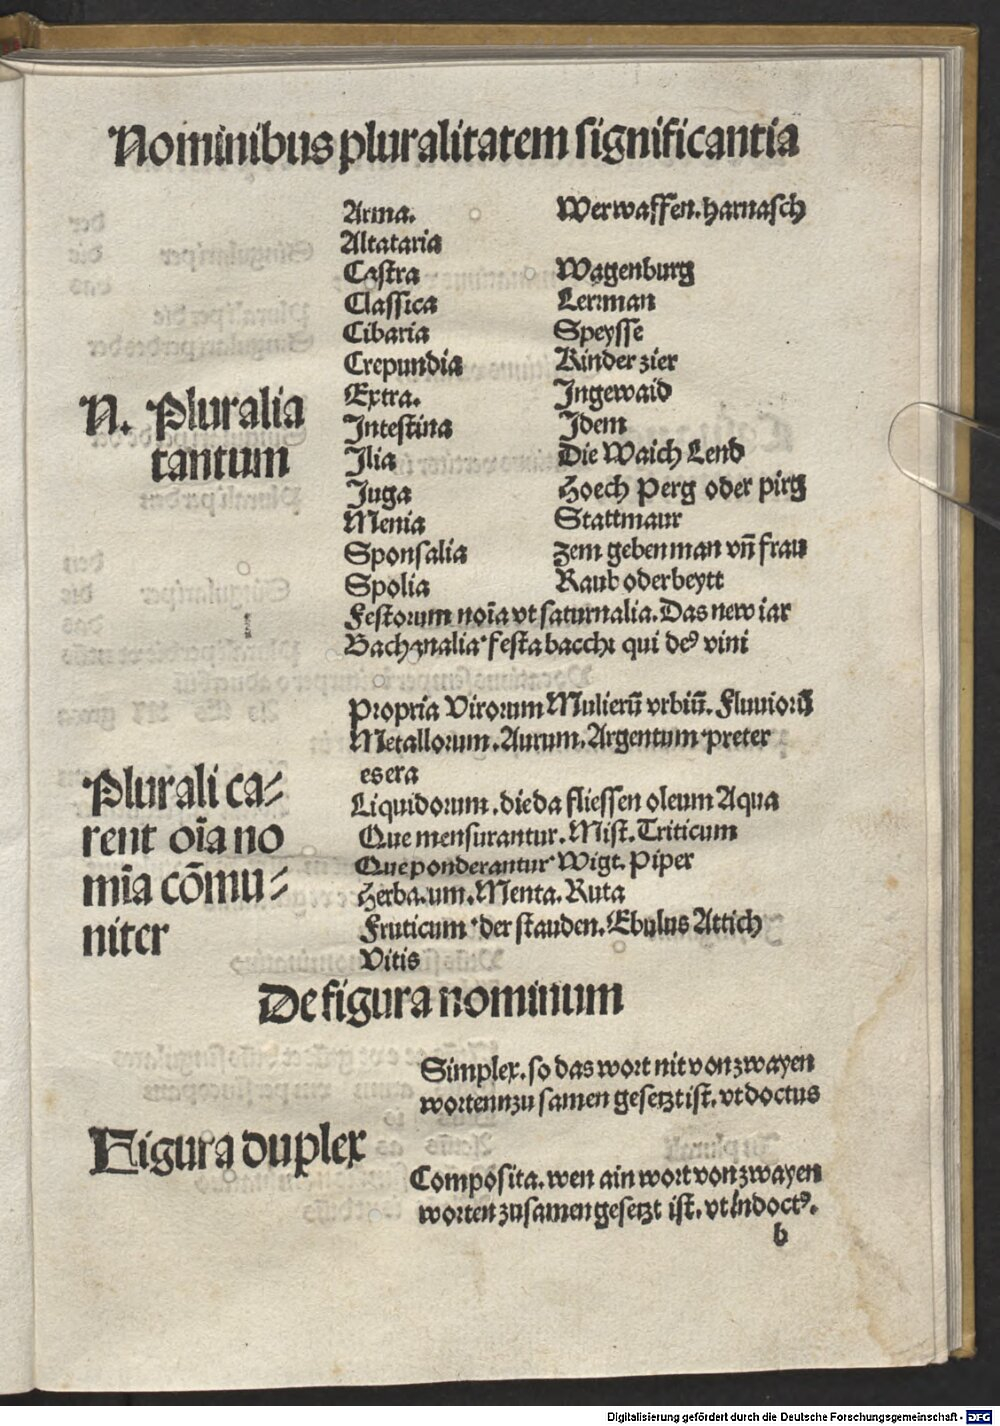 Nominibus pluralitatem significantia
Arma. Werwaffen. harnasch
Altataria
Castra Wagenburg
Classica Lerman
Cibaria Speysse
Crepundia Kinder zier
N. Pluralia tantum
Extra. Ingewaid
Intestina Idem
Ilia Die Waich Lend
Juga Hoech Perg oder pirg
Menia Stattmaur
Sponsalia zem geben man vñ frau
Spolia Raub oder beytt
Festorum noīa vt saturnalia. Das new iar
Bachanalia festa bacchi qui deꝰ vini
Propria Virorum Mulierū vrbiū. Fluuiorū
Metallorum. Aurum. Argentum preter
es era
Plurali ca⸗
rent oīa no
mīa cōmu⸗
niter
Liquidorum. die da fliessen oleum Aqua
Que mensurantur. Mist. Triticum
Que ponderantur Wigt. Piper
Herbarum. Menta. Ruta
Fruticum der stauden. Ebulus Attich
Vitis
De figura nominum
Figura duplex
Simplex. so das wort nit von zwayen
wortenn zu samen gesetzt ist. vt doctus
Composita. wen ain wort von zwayen
worten zusamen gesetzt ist. vt indoctꝰ.
b
Digitalisierung gefördert durch die Deutsche Forschungsgemeinschaft - DFG